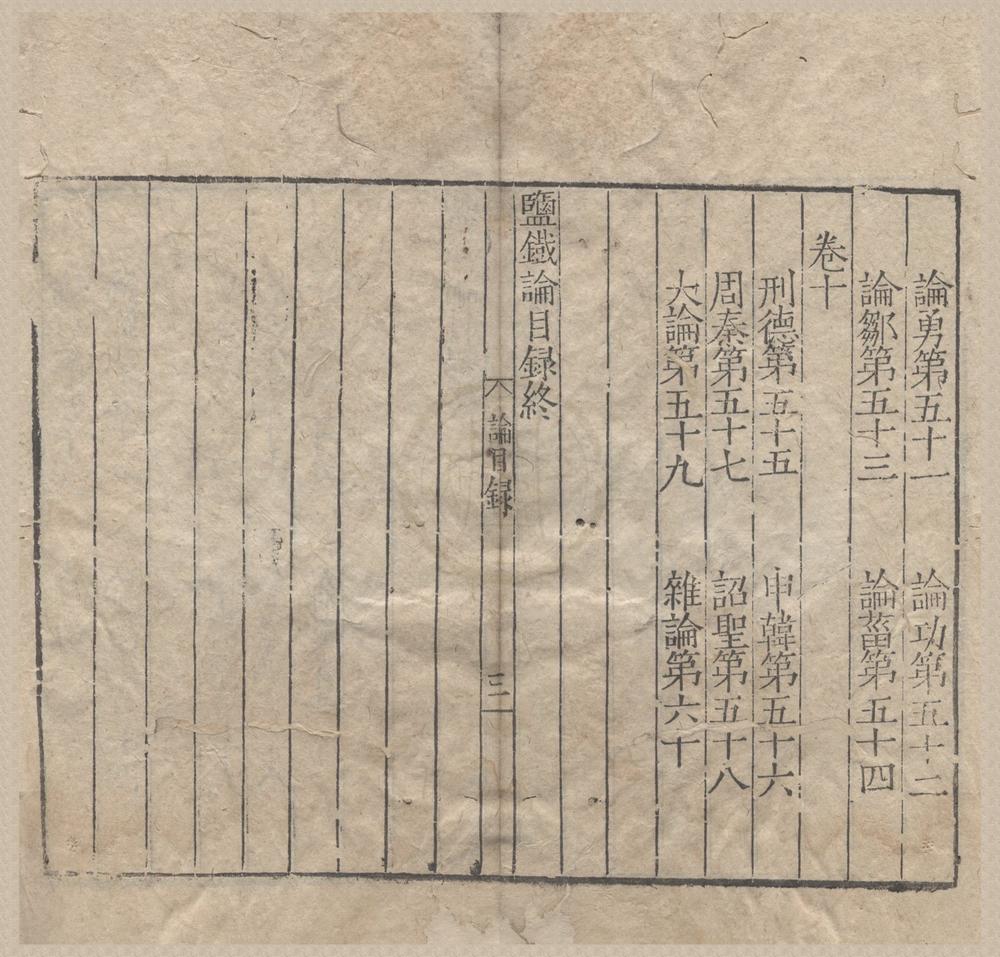 論勇第五十一　論功第五十二
論鄒第五十三　論菑第五十四
卷十
刑德第五十五　申韓第五十六
周秦第五十七　詔聖第五十八
大論第五十九　雜論第六十
鹽鐵論目録終
論目録　三